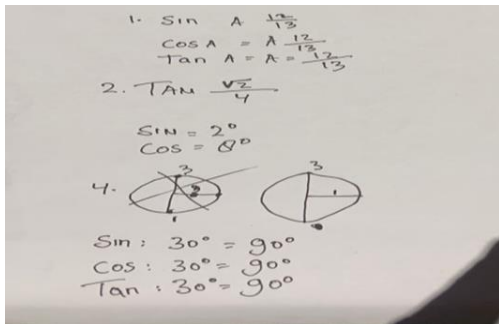 1. Sin A 12/13
Cos A = A 12/13
Tan A = A = 12/13
2. TAN √2/4
SIN = 2°
COS = 8°
4. 3 2 1 3 1
Sin : 30° = 90°
Cos : 30° = 90°
Tan : 30° = 90°